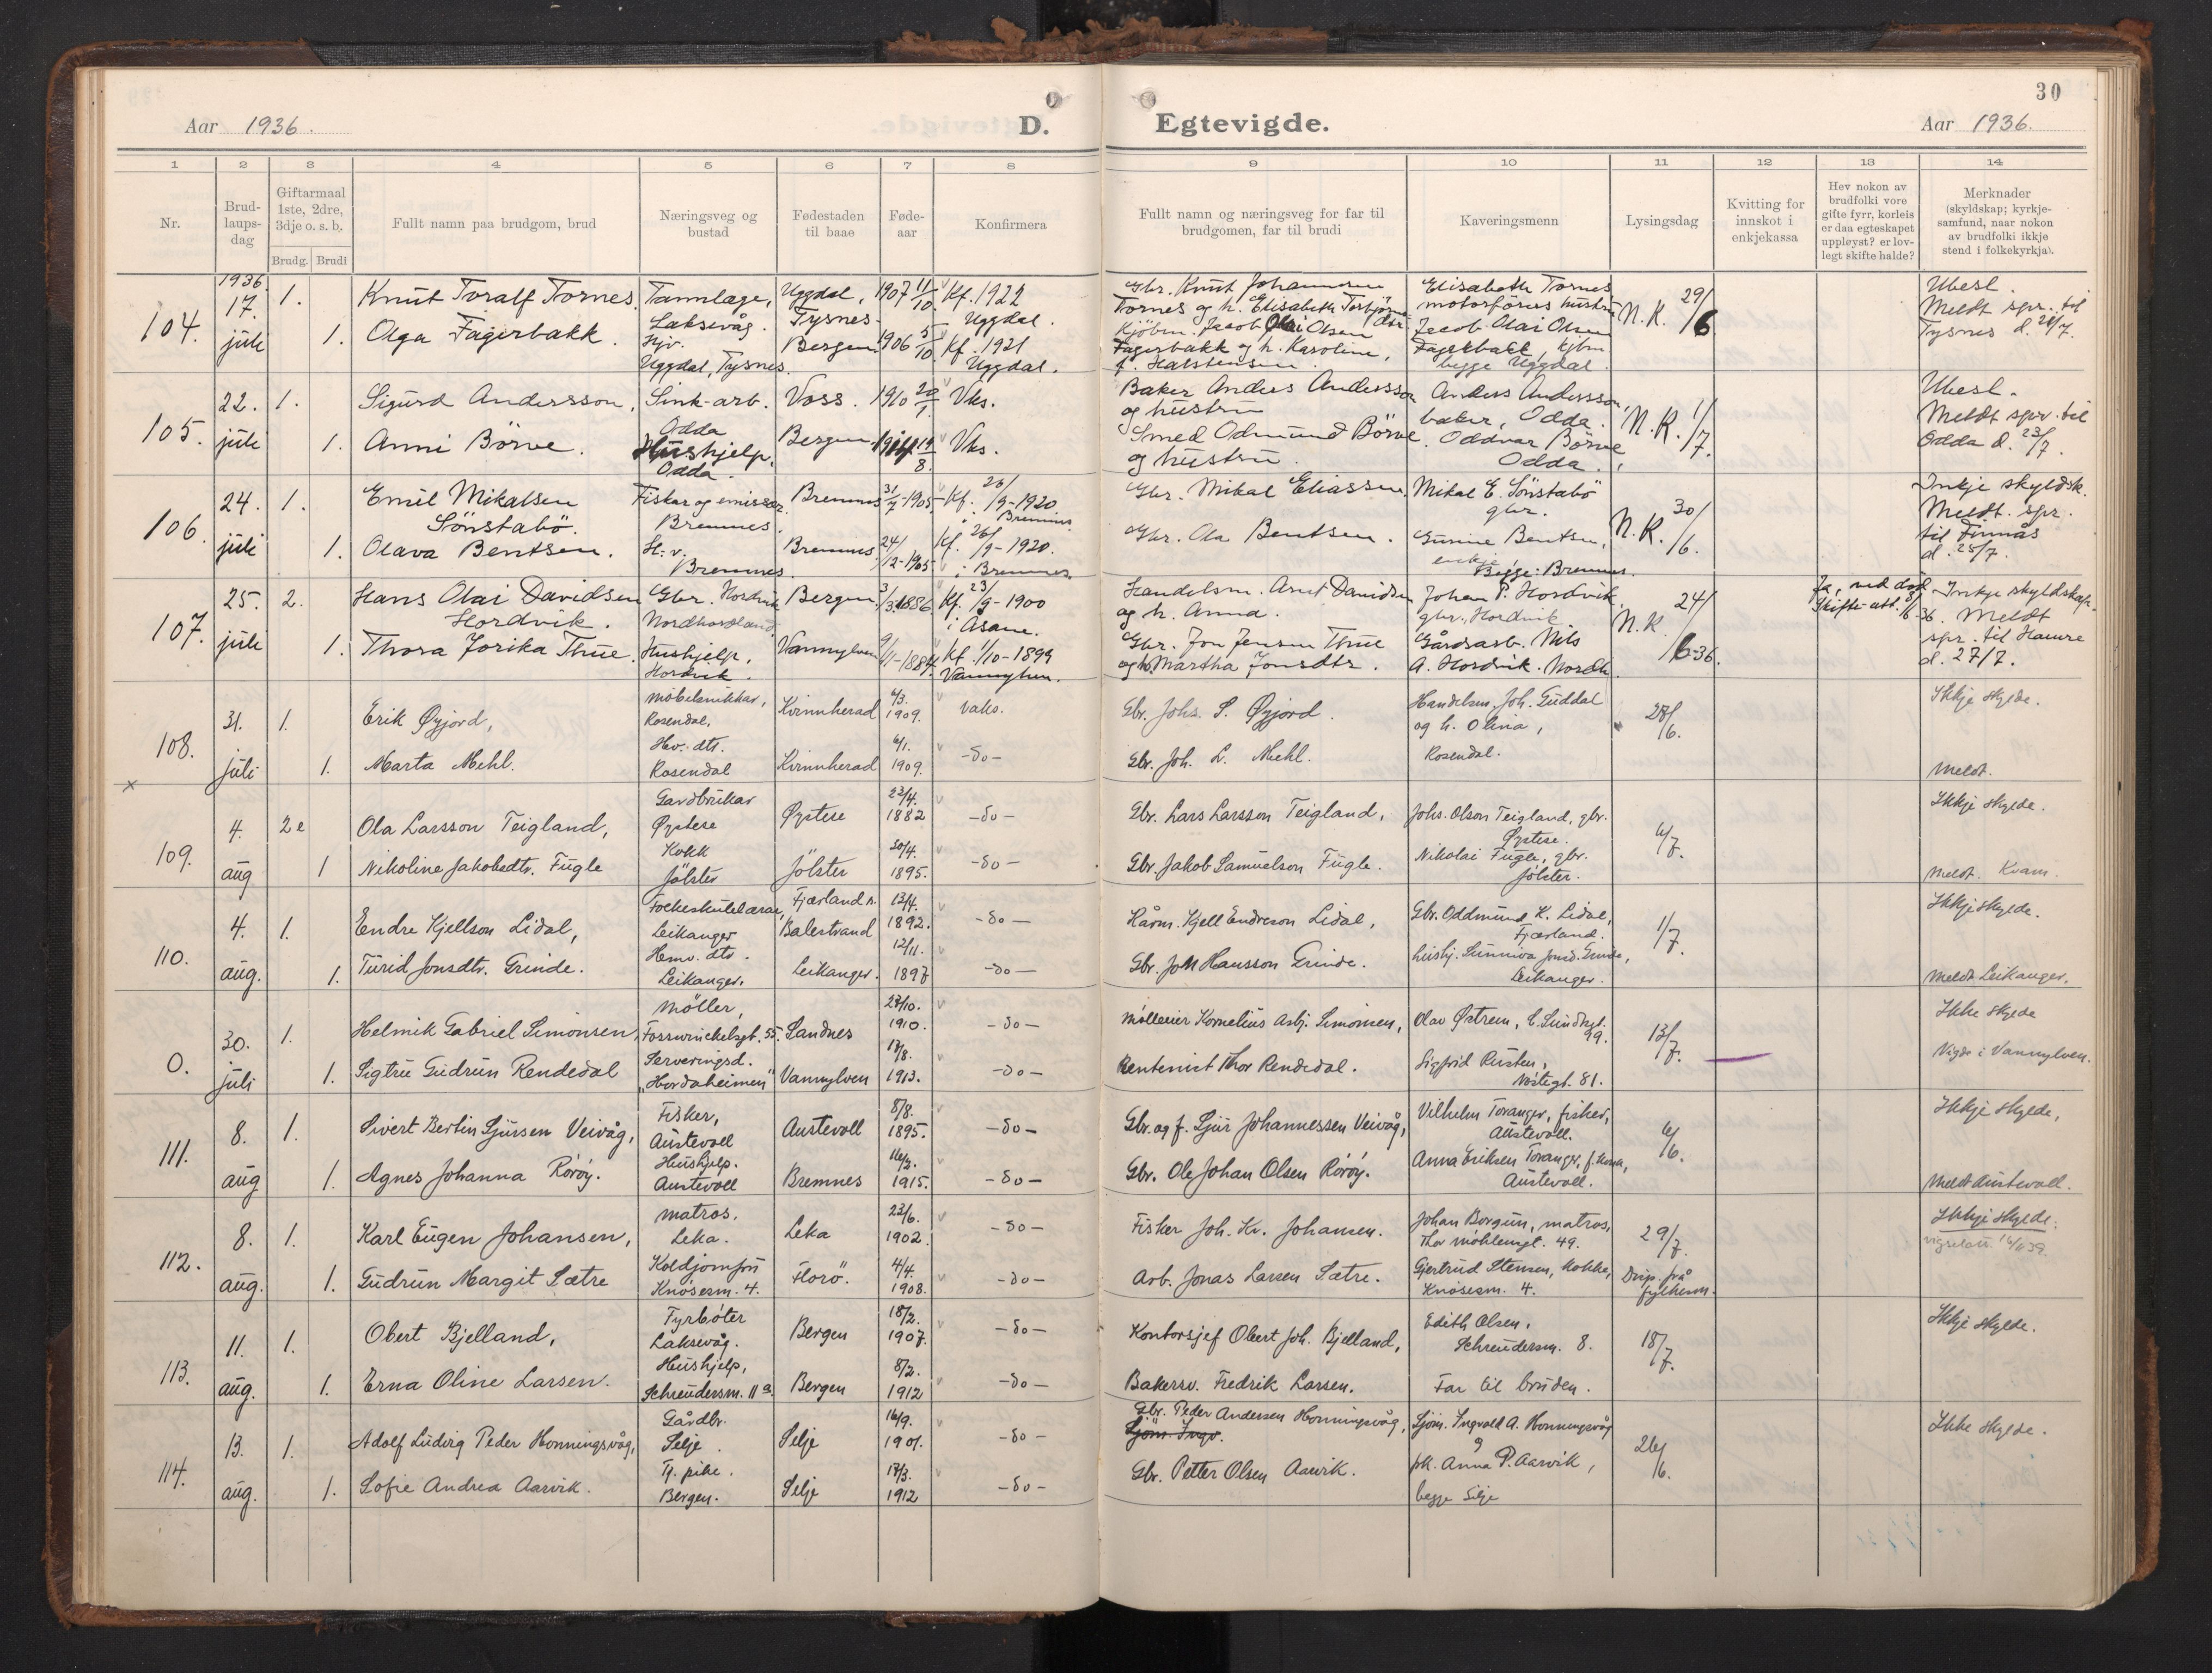 Aar 1936.
D.
Egtevigde.
30
Aar 1936.
1 2 3 4 5 6 7 8 9 10 11 12 13 14
Nr.
Brud-
laups-
dag
Giftarmaal
1ste, 2dre,
3dje o. s. b.
Brudg. Brudi
Fullt namn paa brudgom, brud
Næringsveg og
bustad
Fødestaden
til baae
Føde-
aar
Konfirmera
Fullt namn og næringsveg for far til
brudgomen, far til brudi
Kaveringsmenn
Lysingsdag
Kvitting for
innskot i
enkjekassa
Hev nokon av
brudfolki vore
gifte fyrr, korleis
er daa egteskapet
uppløyst? er lov-
legt skifte halde?
Merknader
(skyldskap; kyrkje-
samfund, naar nokon
av brudfolki ikkje
stend i folkekyrkja).
104.
1936.
17.
juli
1.
Knut Toralf Tornes
Tannlæge,
Laksevåg.
Uggdal,
Tysnes
1907 11/10
Kf. 1922
Uggdal.
Gbr. Knut Johannesen
Tornes og h. Elisabeth Torbjørnsdtr.
Elisabeth Tornes
motorførers hustru
N. K. 29/6
Ubesl.
Meldt spr. til
Tysnes d. 28/7.
1.
Olga Fagerbakk.
Hjv.
Uggdal, Tysnes.
Bergen
1906 5/10
Kf. 1921
Uggdal.
Kjøbm. Jacob Olai Olsen
Fagerbakk og h. Karoline,
f. Halstensen.
Jacob Olai Olsen
Fagerbakk, kjbm
begge Uggdal.
105.
22.
juli
1.
Sigurd Andersson,
Sink-arb.
Odda
Voss.
1910 20/1
Vks.
Baker Anders Andersson
og hustru
Anders Andersson,
baker, Odda.
N. K. 1/7.
Ubesl.
Meldt spr. til
Odda d. 23/7.
1.
Anni Börve.
Hushjelp,
Odda.
Bergen
1914 19/8.
Vks.
Smed Odmund Börve
og hustru.
Oddvar Börve
Odda.
106.
24.
juli
1.
Emil Mikalsen
Sönstabö.
Fisker og emissær
Bremnes.
Bremnes
31/7-1905
Kf. 26/9-1920
i Bremnes
Gbr. Mikal Eliassen.
Mikal E. Sönstabö
gbr.
N. K. 30/6.
Inkje skyldsk.
Meldt spr.
til Finnås
d. 25/7.
1.
Olava Bentsen.
H. v.
Bremnes.
Bremnes
24/12-1905
Kf. 26/9-1920.
i Bremnes.
Gbr. Ola Bentsen.
Gurine Bentsen,
enkje
Begge: Bremnes.
107.
25.
juli
2.
Hans Olai Davidsen
Hordvik.
Gbr. Hordvik
Nordhordland
Bergen
3/3 1886
Kf. 23/9-1900
i Åsane.
Handelsm. Arnt Davidsen
og h. Anna.
Johan P. Hordvik,
gbr., Hordvik
N. K. 24/6-36.
Ja, ved død.
Skifte-att. 5/6-36.
Inkje skyldskap.
Meldt
spr. til Hamre
d. 27/7.
1.
Thora Jorika Thue.
Hushjelp,
Hordvik.
Vannylven
9/11-1884.
Kf. 1/10-1899
Vannylven.
Gbr. Jon Jensen Thue
og h. Martha Jonsdtr.
Gårdsarb. Nils
A. Hordvik. Nordh.
108.
31.
juli
1.
Erik Øyjord,
Møbelsnikkar,
Rosendal,
Kvinnherad
6/3.
1909.
vaks.
Gbr. Johs. S. Øyjord.
Handelsm. Joh. Guddal
og h. Olina,
28/6.
Ikkje skylde.
1.
Marta Mehl.
Hev. dtr.
Rosendal
Kvinnherad
6/1.
1909.
-do-
Gbr. Joh. L. Mehl.
Rosendal.
Meldt.
x
109.
4.
aug
2e
Ola Larsson Teigland,
Gardbrukar
Øystese
Øystese
23/4.
1882
-do-
Gbr. Lars Larsson Teigland,
Johs. Olson Teigland, gbr.
Øystese.
6/7.
Ikkje skylde.
1
Nikoline Jakobsdtr. Fugle
Kokk
Jölster
Jölster
30/4.
1895.
-do-
Gbr. Jakob Samuelson Fugle.
Nikolai Fugle, gbr.
Jölster.
Meldt. Kvam.
110.
4.
aug.
1.
Endre Kjellson Lidal,
Folkeskulelærar,
Leikanger
Fjærland s.
Balestrand
13/4.
1892.
-do-
Kårm. Kjell Endreson Lidal,
Gbr. Oddmund K. Lidal,
Fjærland.
1/7.
Ikkje skylde.
1.
Turid Jonsdtr. Grinde.
Heim. dtr.
Leikanger.
Leikanger.
12/11.
1897
-do-
Gbr. Jon Hansson Grinde.
hushj. Sunniva Jonsd. Grinde,
Leikanger.
Meldt Leikanger.
0.
30.
juli
1.
Helmik Gabriel Simonsen,
Möller,
Fosswinckelsgt. 55.
Sandnes
23/10.
1910.
-do-
Möllerier Kornelius Asbj. Simonsen,
Olav Østrem, C. Sundtsgt.
99.
13/7.
Ikke skylde
1.
Sigtru Gudrun Rendedal
Serveringsd.
"Hordaheimen"
Vannylven
17/8.
1913.
-do-
Rentenist Thor Rendedal.
Sigfrid Rusten,
Nöstegt. 81.
Vigde i Vannylven.
111.
8.
aug
1.
Sivert Bertin Sjursen Veivåg,
Fisker,
Austevoll
Austevoll
8/8.
1895.
-do-
Gbr. og f. Sjur Johannessen Veivåg,
Vilhelm Toranger, fisker,
Austevoll.
6/6.
Ikkje skylde,
1.
Agnes Johanna Röröy.
Hushjelp.
Austevoll
Bremnes
16/2.
1915.
-do-
Gbr. Ole Johan Olsen Röröy.
Anna Eriksen Toranger, f. kona,
Austevoll.
Meldt Austevoll.
112.
8.
aug.
1.
Karl Eugen Johansen,
Matros.
Leka.
Leka
23/6.
1902.
-do-
Fisker Joh. Kr. Johansen.
Johan Borgun, matros,
Thor Möhlensgt. 49.
29/7.
Ikkje skylde.
vigselatt. 16/6 39.
1.
Gudrun Margit Sætre
Koldjomfru
Knösesm. 4.
Florö.
4/4.
1908.
-do-
Arb. Jonas Larsen Sætre.
Gjertrud Stensen, kokke,
Knösesm. 4.
Disp. frå
fylkesm.
113.
11.
aug.
1.
Obert Bjelland,
Fyrböter
Laksevåg.
Bergen
18/2.
1907.
-do-
Kontorsjef Obert Joh. Bjelland,
Edith Olsen,
Schreudersm. 8.
18/7.
Ikkje skylde.
1.
Erna Oline Larsen.
Hushjelp,
Schreudersm. 11a
Bergen
8/2.
1912
-do-
Bakersv. Fredrik Larsen.
Far til bruden.
114.
13.
aug.
1.
Adolf Ludvig Peder Honningsvåg,
Gårdbr.
Selje.
Selje
16/9.
1901.
-do-
Gbr. Peder Andersen Honningsvåg,
Sjöm. Ingv.
Sjöm. Ingvald A. Honningsvåg
og
26/6.
Ikke skylde.
1.
Sofie Andrea Aarvik.
Tj. pike.
Bergen.
Selje
17/3.
1912
-do-
Gbr. Petter Olsen Aarvik.
pk. Anna P. Aarvik,
begge Selje